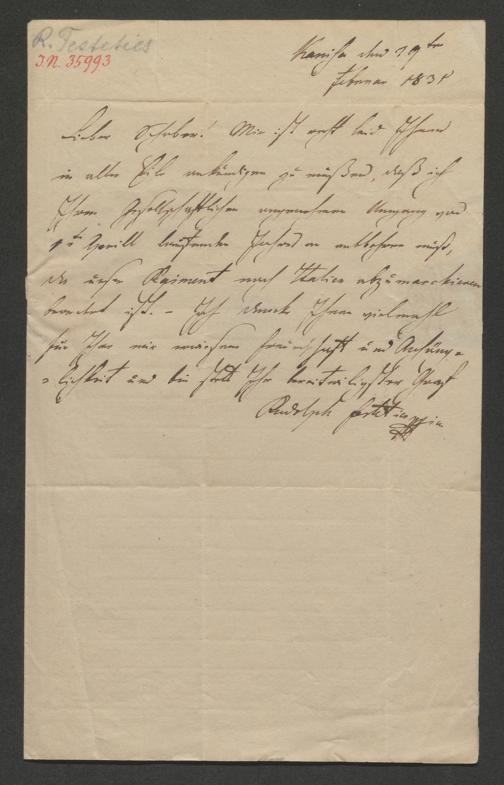 R. Festetics
I.N. 35993
Kanisa den 19ten
Februar 1831
Lieber Schober! Mir ist recht leid Ihnen
in aller Eile ankündigen zu müßen, daß ich
Ihren Gesellschaftlichen angenehmen Umgang von
1ten Aprill laufenden Jahres an entbehren muß,
da unser Raiment nach Italien abzumarschieren
beordert ist. – Ich danke Ihnen vielmahl
für Ihre mir erwiesene Freundschaft und Anhäng=
=lichkeit und bin stets Ihr bereitwiligster Graf
Rudolph Festetics